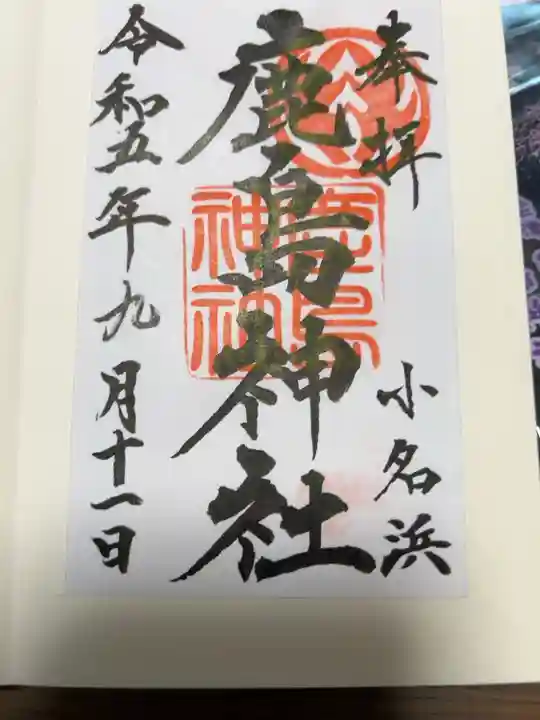 奉拝
小名浜
鹿島神社
鹿島
神社
令和五年九月十一日